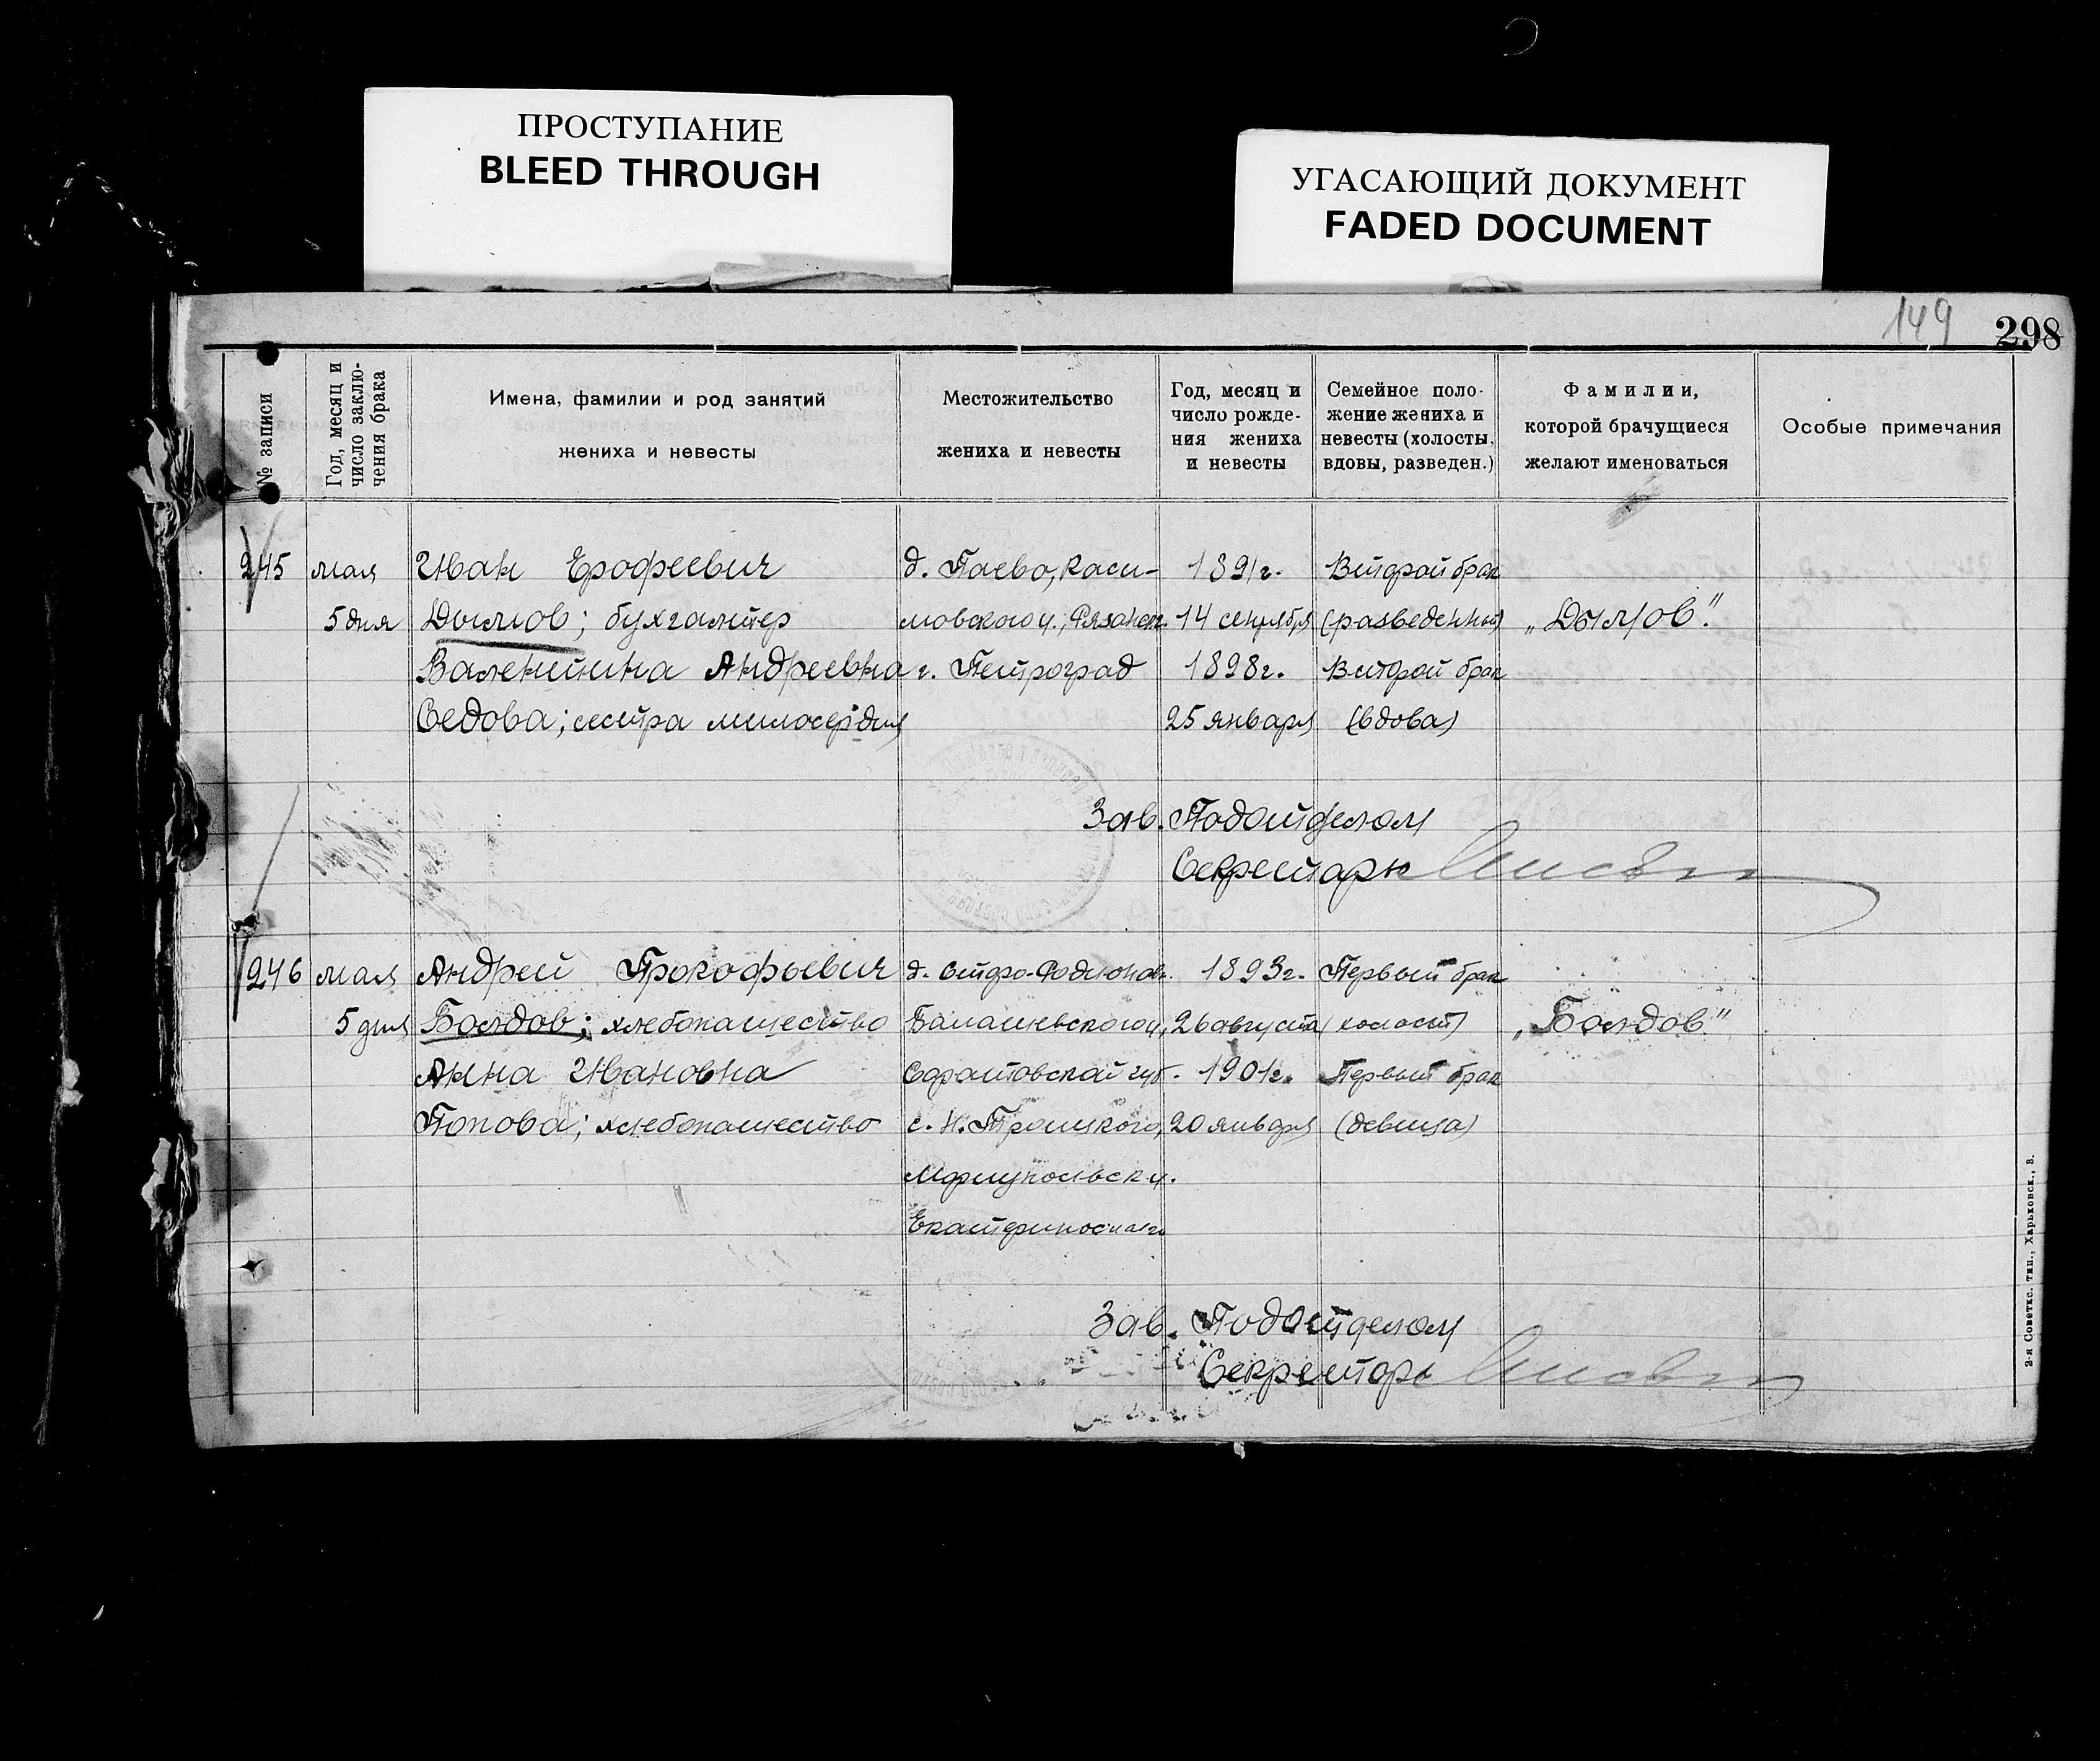 ПРОСТУПАНИЕ
BLEED THROUGH
УГАСАЮЩИЙ ДОКУМЕНТ
FADED DOCUMENT
149 298
№ записи
Год, месяц и
число заклю-
чения брака
Имена, фамилии и род занятий
жениха и невесты
Местожительство
жениха и невесты
Год, месяц и
число рожде-
ния жениха
и невесты
Семейное поло-
жение жениха и
невесты (холосты,
вдовы, разведен.)
Фамилии,
которой брачущиеся
желают именоваться
Особые примечания
245 мая Иван Ерофеевич д. Паево, Каси- 1891г. Второй брак
5 дня Дымов; бухгалтер мовского у., Рязанск. 14 сентября (разведенный) „Дымов."
Валентина Андреевна г. Петроград 1898г. Второй брак
Седова; сестра милосердия 25 января (вдова)
Зав. Подотделом
Секретарь
246 мая Андрей Прокофьевич д. 1893г. Первый брак
5 дня Болдов; хлебопашество Балашевского у, 26 августа (холост) „Болдов."
Анна Ивановна Саратовской губ. 1901г. Первый брак
Попова; хлебопашество с. Н. Троицкого, 20 января (девица)
Мариупольск у.
Зав. Подотделом
Секретарь
2-я Советск. тип., Харьковск., 3.